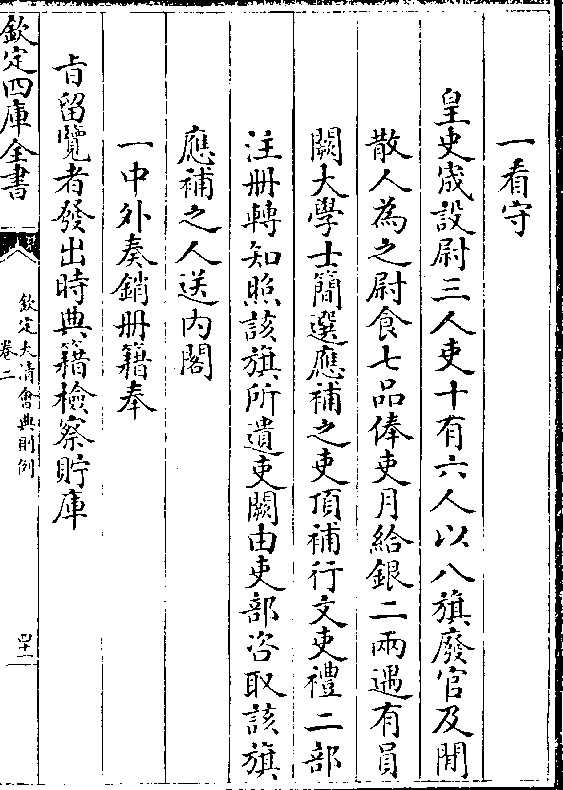 一看守
皇史宬設尉三人吏十有六人以八旗廢官及閒
散人為之尉食七品俸吏月給銀二兩遇有員
闕大學士簡選應補之吏頂補行文吏禮二部
注冊轉知照該旗所遺吏闕由吏部咨取該旗
應補之人送内閣
一中外奏銷冊籍奉
㫖留覽者發出時典籍檢察貯庫
欽定四庫全書
欽定大清會典則例
卷二